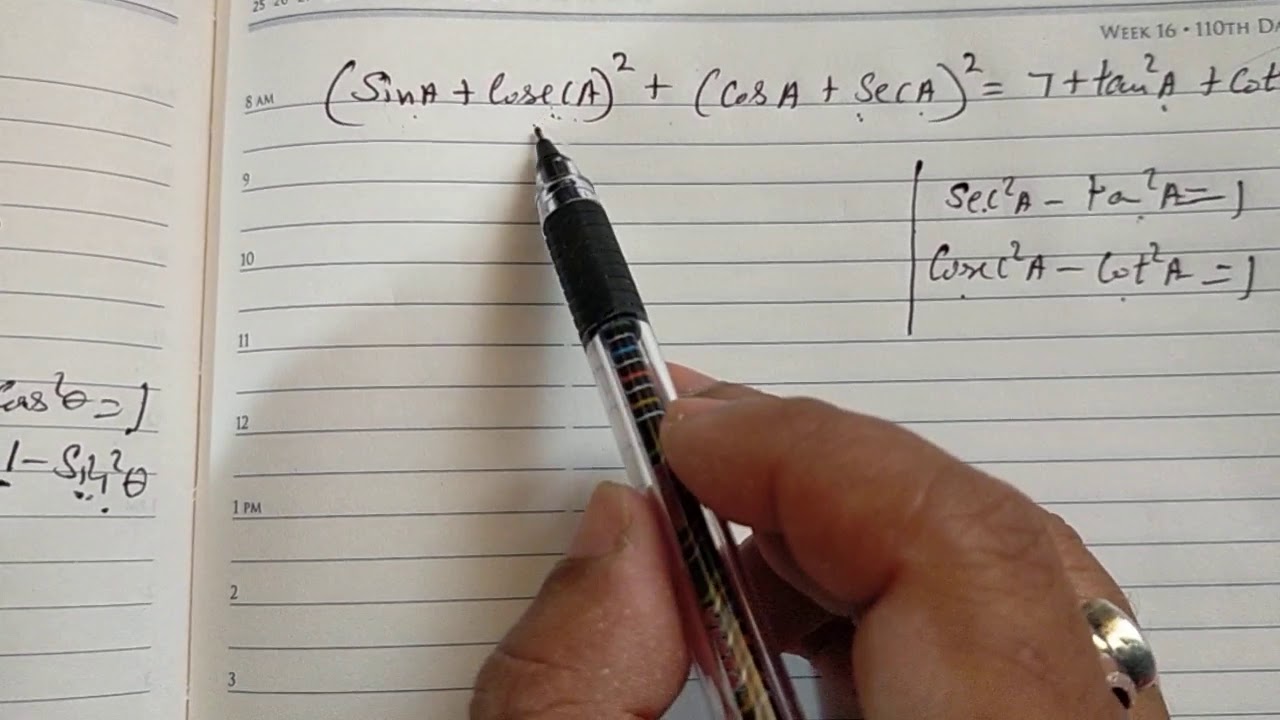 25 26
WEEK 16 • 110TH DA
(SinA + CosecA)² + (CosA + SecA)² = 7 + tan²A + Cot
8 AM
9
Sec²A - tan²A = 1
10
Cosec²A - Cot²A = 1
11
Cos²θ = 1
12
1 - Sin²θ
1 PM
2
3